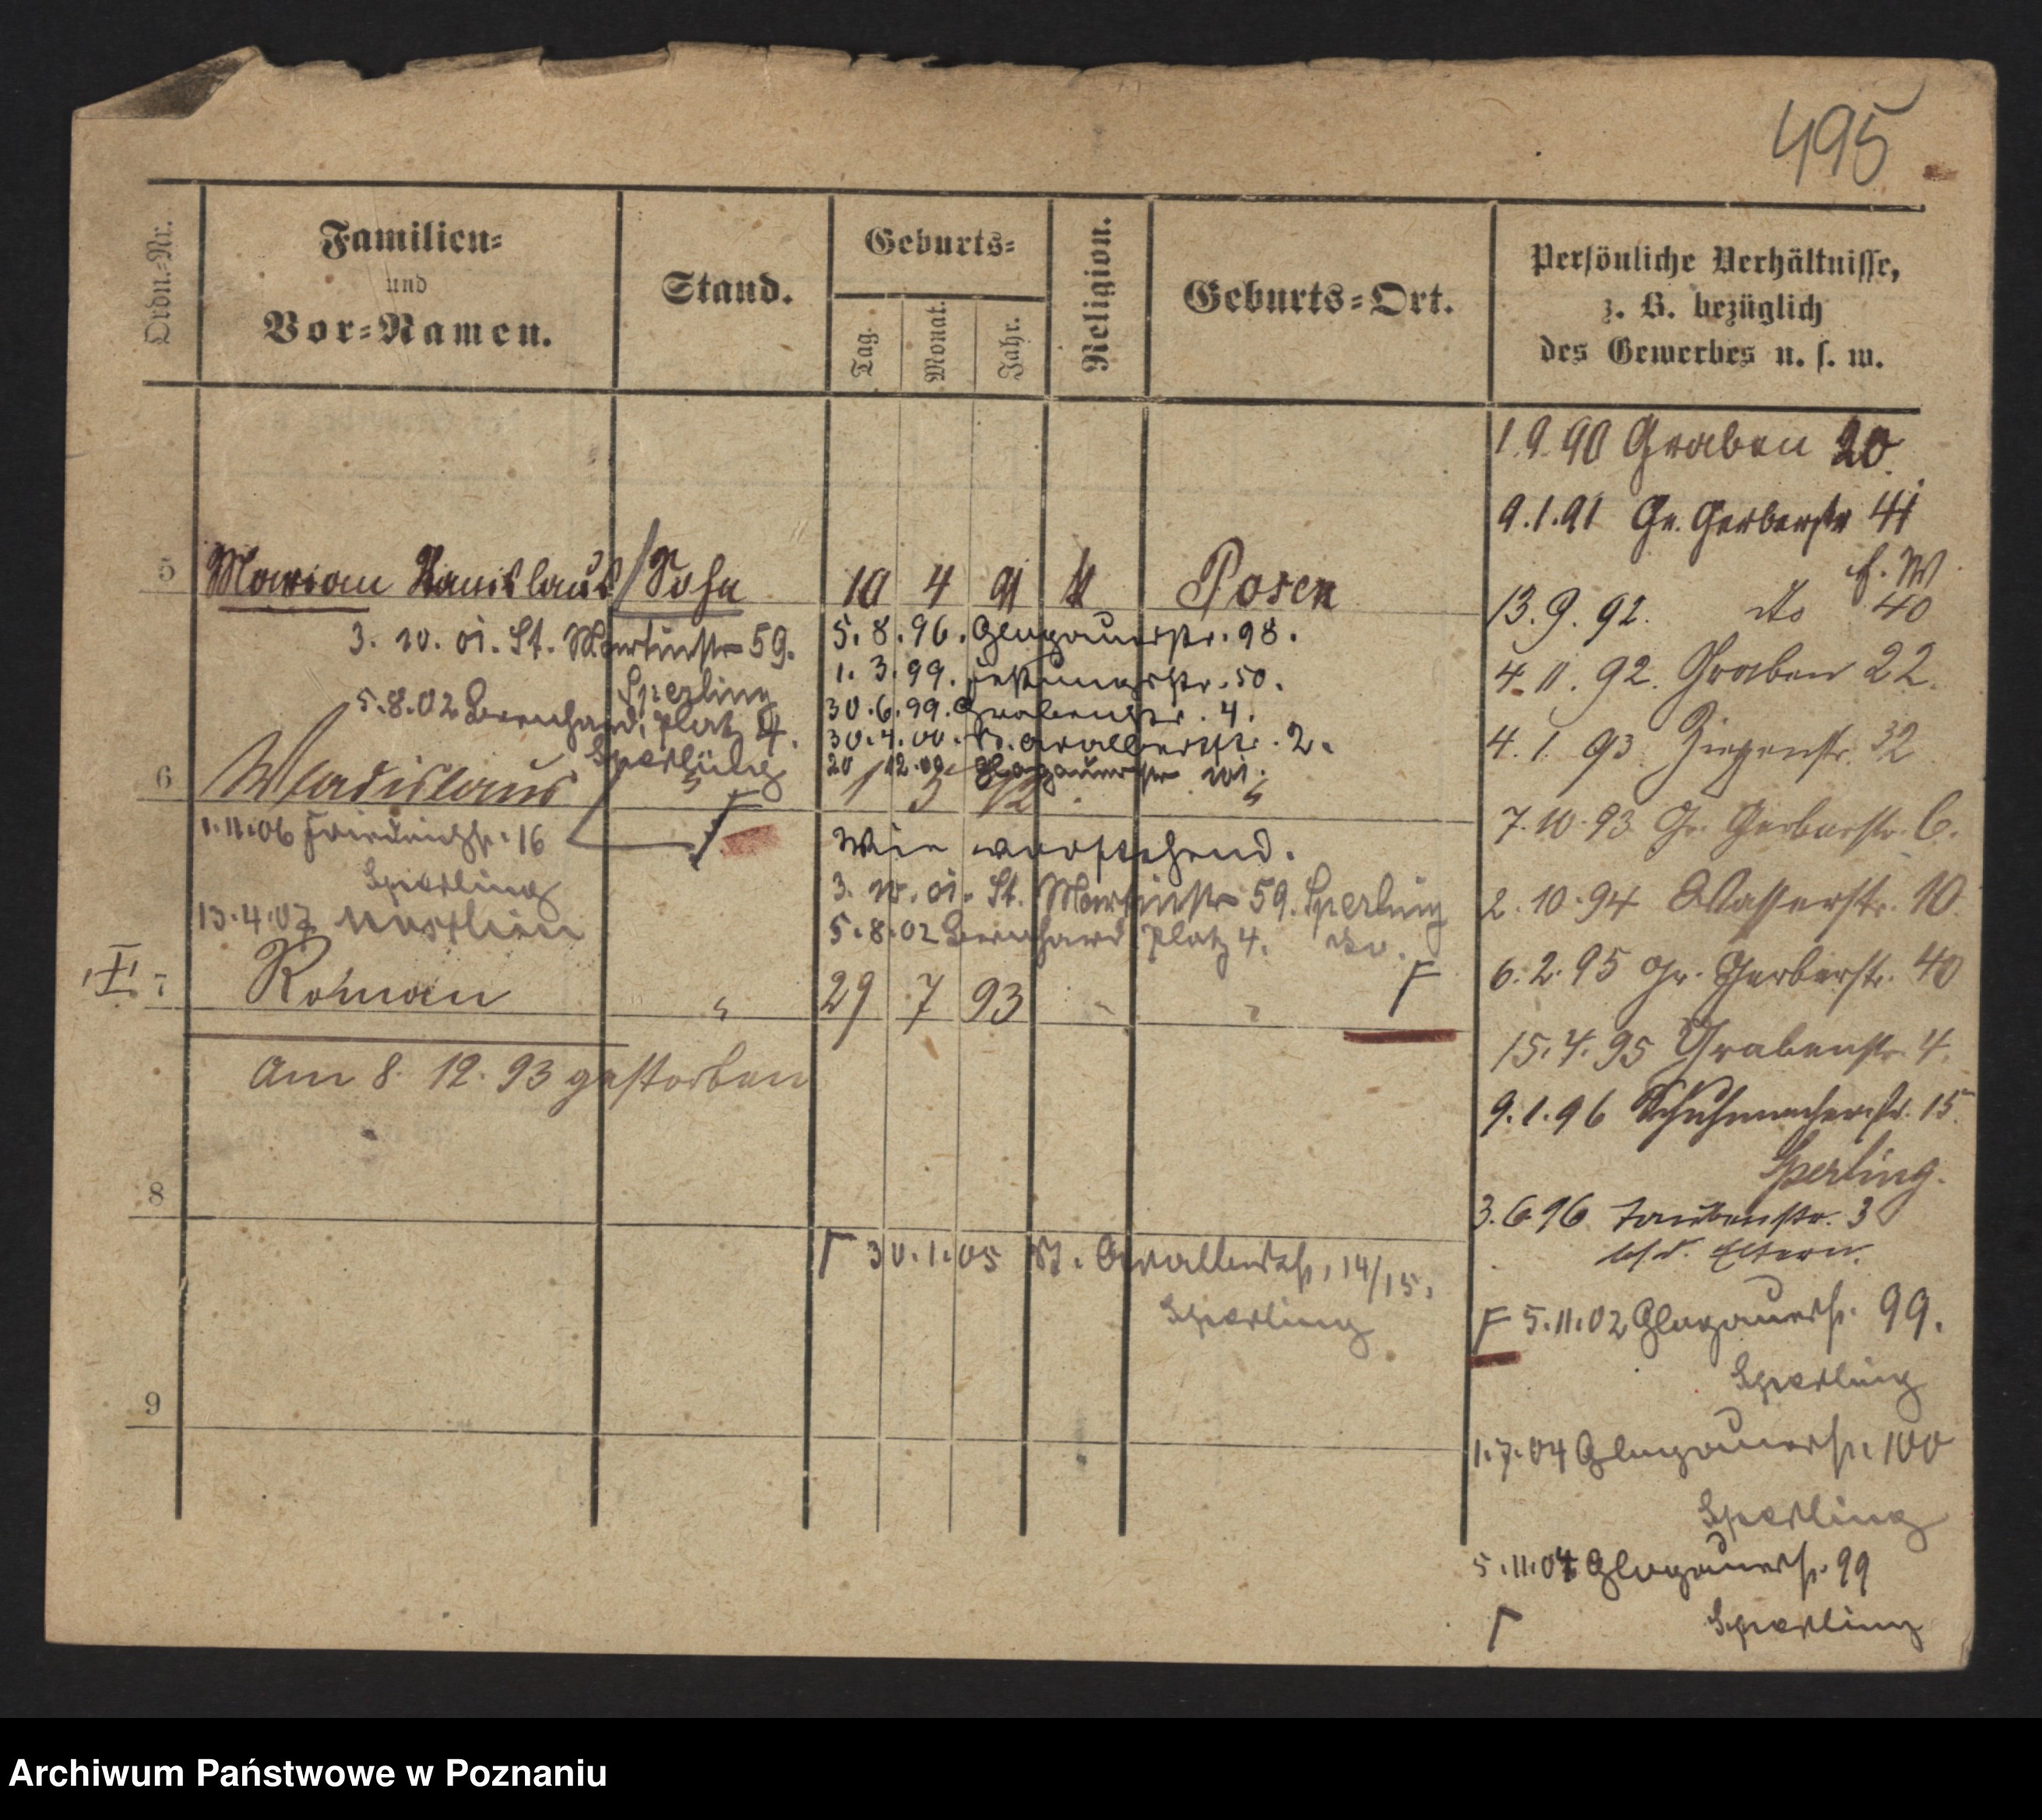 495
Ordn.-Nr.
Familien-
und
Vor-Namen.
Stand.
Geburts-
Tag.
Monat.
Jahr.
Religion.
Geburts-Ort.
Persönliche Verhältnisse,
z. B. bezüglich
des Gewerbes u. s. w.
1.9.90 Graben 20.
9.1.91 Gr. Gerberstr 41
f. W
13.9.92. do 40
4.11.92. Graben 22.
4.1.93. Ziegenstr. 32
7.10.93 Gr. Gerberstr. 6.
2.10.94 Wasserstr. 10.
6.2.95 Gr. Gerberstr. 40
15.4.95 Grabenstr. 4.
9.1.96 Schuhmacherstr. 15.
Sperling.
3.6.96 Taubenstr. 3
b/d. Eltern.
F 5.11.02 Glogauerstr. 99.
Sperling
1.7.04 Glogauerstr. 100
Sperling
5.11.04 Glogauerstr. 99
Sperling
5 Marian Stanislaus Sohn 10 4 91 k Posen
3.10.01. St. Martinstr 59.
Sperling
5.8.02 Bernhard. platz 4.
Sperling
5.8.96. Glogauerstr. 98.
1.3.99. Festungsstr. 50.
30.6.99. Grabenstr. 4.
30.4.00. St. Adalbertstr. 2.
20 12.00. Glogauerstr 101.
6 Wladislaus " 1 3 92 "
1.11.06 Friedrichstr. 16
Sperling
13.4.07
Wie vorstehend.
3.10.01. St. Martinstr 59. Sperling
5.8.02 Bernhard platz 4. do.
F
II 7 Roman " 29 7 93 " "
Am 8. 12. 93 gestorben
8
30.1.05 St. Adalbertstr. 14/15.
Sperling
9
Archiwum Państwowe w Poznaniu